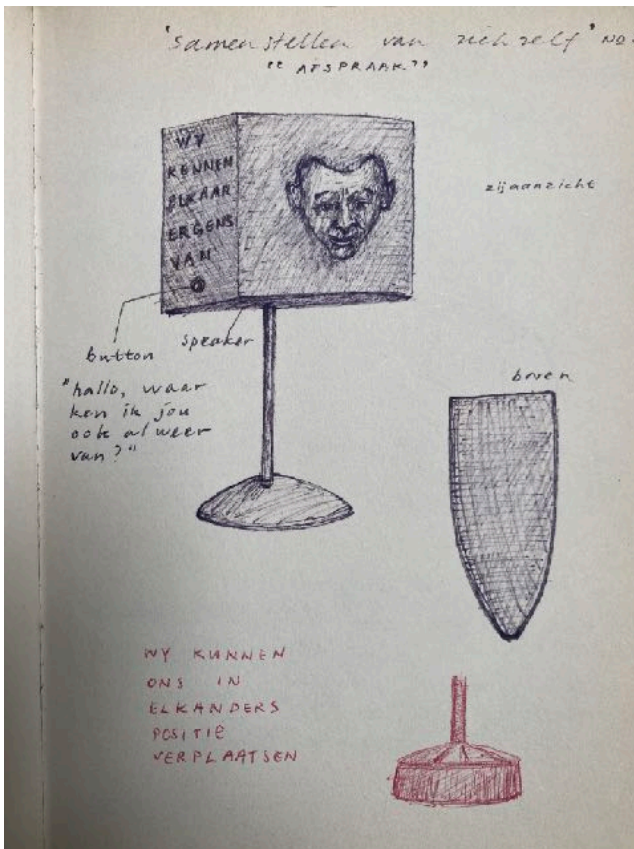 'samenstellen van zichzelf' NO.
"AFSPRAAK"
WY
KENNEN
ELKAAR
ERGENS
VAN
zijaanzicht
button
speaker
"hallo, waar
ken ik jou
ook al weer
van?"
boven
WY KUNNEN
ONS IN
ELKANDERS
POSITIE
VERPLAATSEN